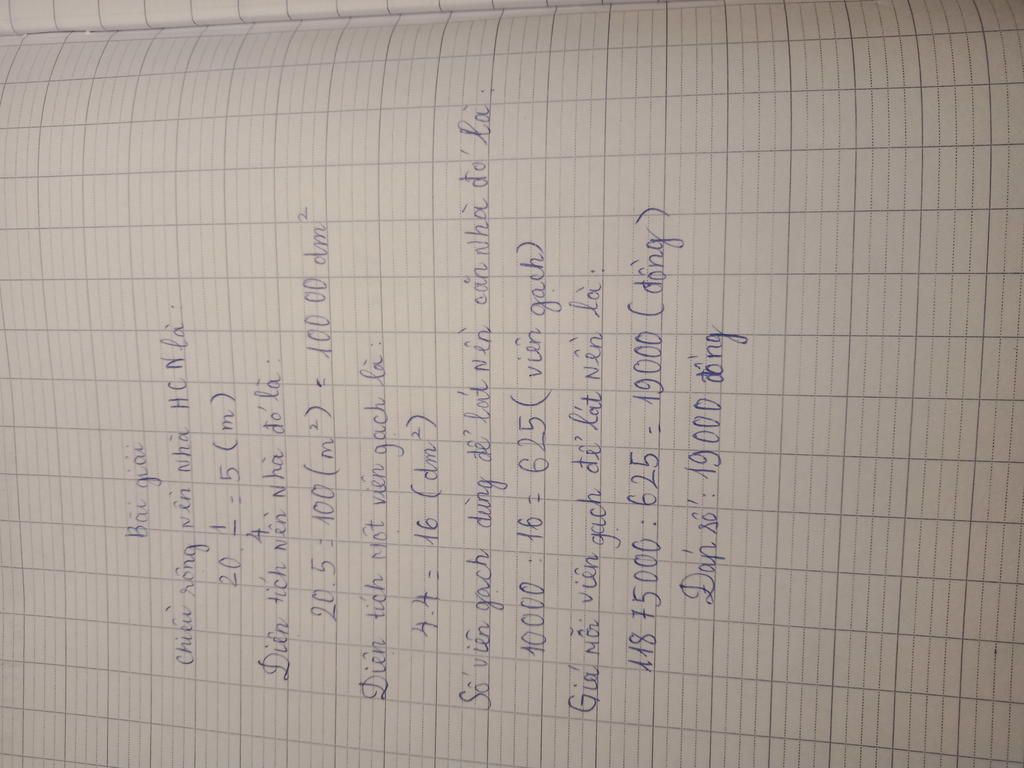 Bài giải
Chiều rộng nền nhà HCN là:
20. 1/4 = 5 (m)
Diện tích nền nhà đó là:
20.5 = 100 (m²) = 100 00 dm²
Diện tích một viên gạch là:
4.4 = 16 (dm²)
Số viên gạch dùng để lát nền căn nhà đó là:
10000 : 16 = 625 (viên gạch)
Giá mỗi viên gạch để lát nền là:
11875000 : 625 = 19000 (đồng)
Đáp số: 19000 đồng